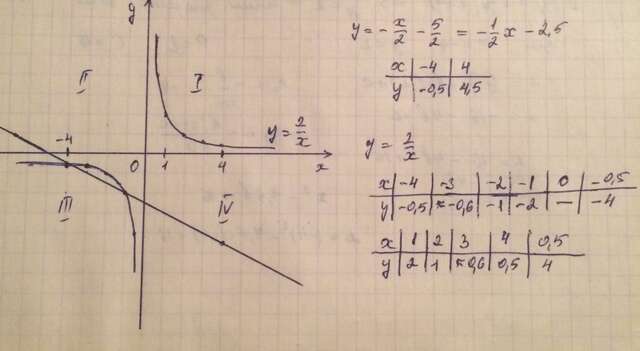 y
II
I
y = 2/x
-4
0
1
4
x
III
IV
y = -x/2 - 5/2 = -1/2x - 2,5
x | -4 | 4
y | -0,5 | 4,5
y = 2/x
x | -4 | -3 | -2 | -1 | 0 | -0,5
y | -0,5 | ≈-0,6 | -1 | -2 | — | -4
x | 1 | 2 | 3 | 4 | 0,5
y | 2 | 1 | ≈0,6 | 0,5 | 4